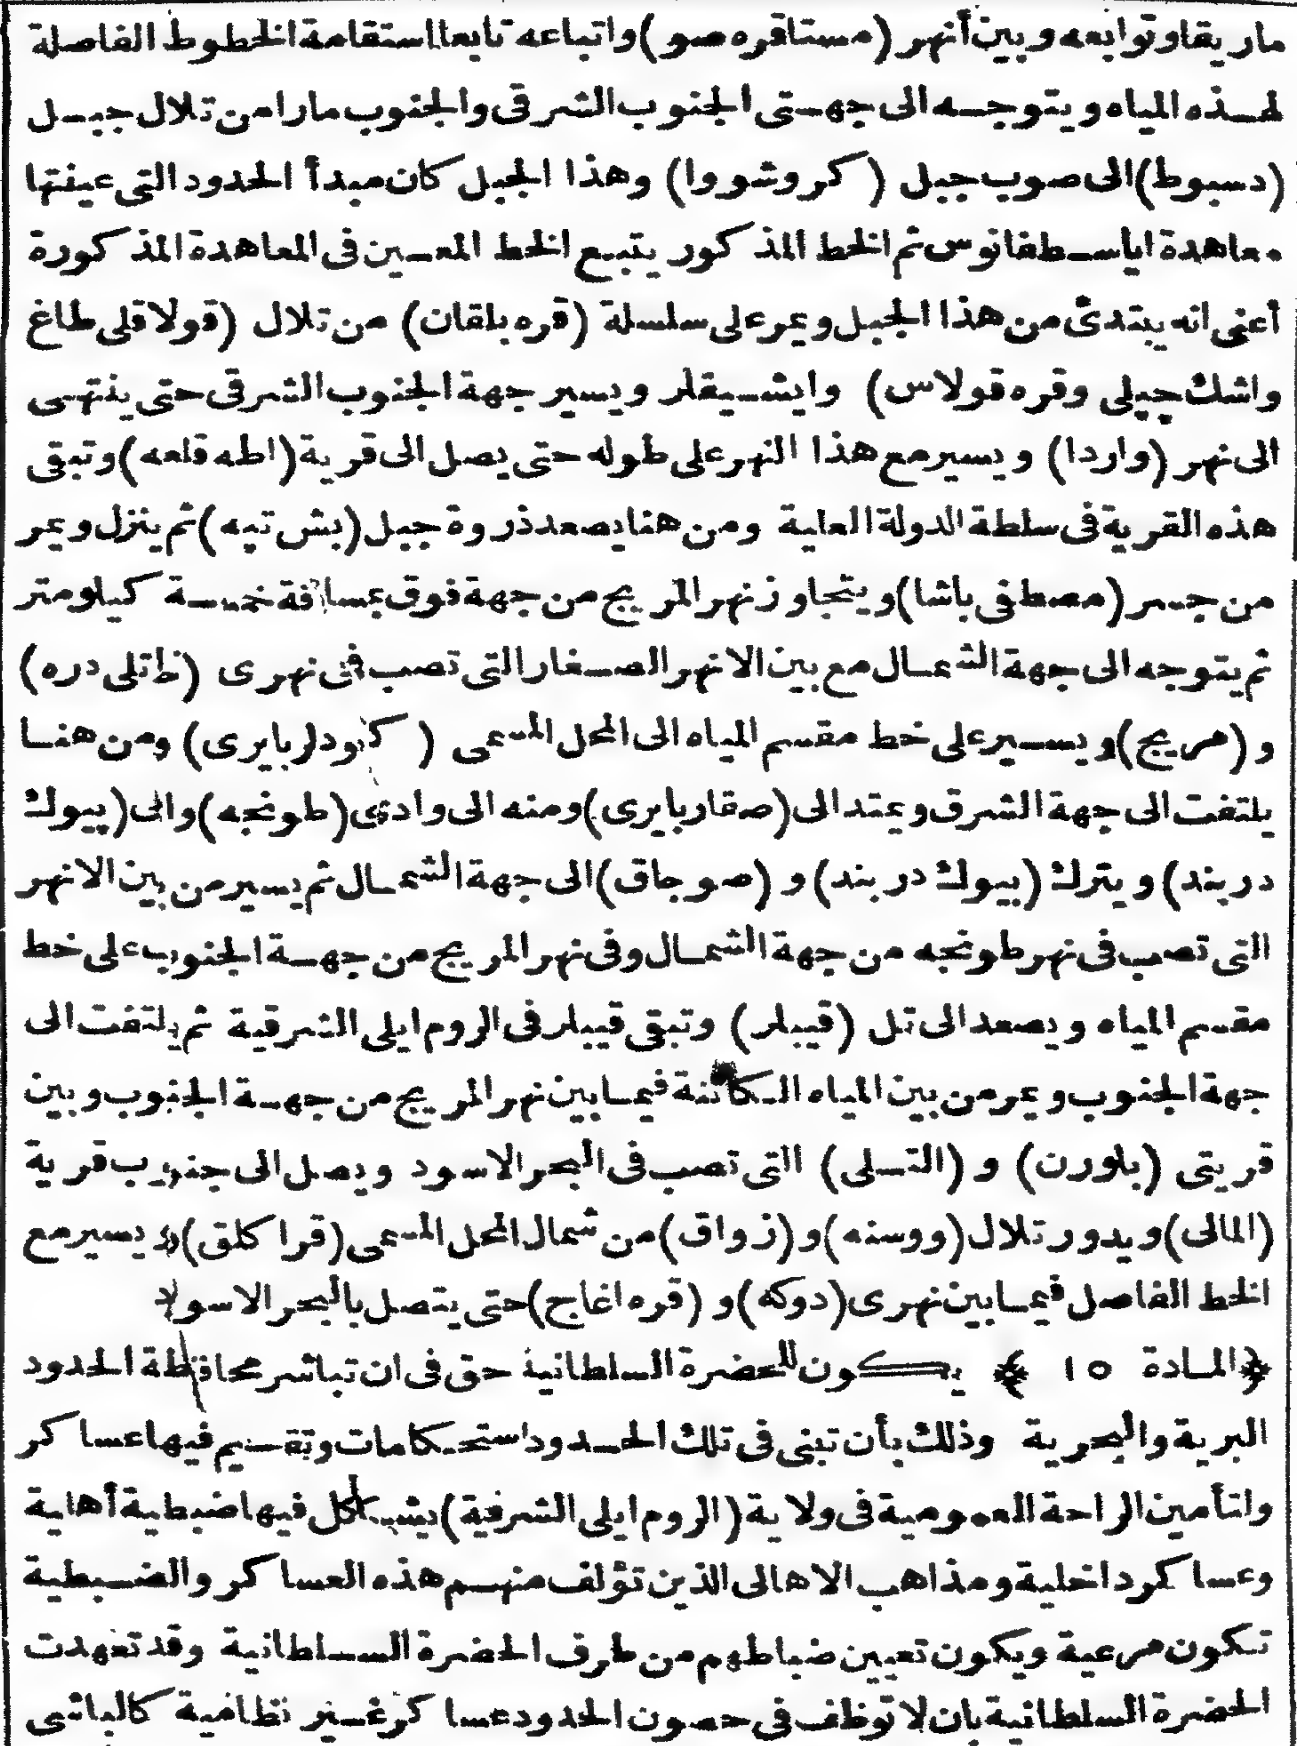 ماريقا وتوابعه وبين أنهر (مستاقره صو) واتباعه تابعا استقامة الخطوط الفاصلة
لهذه المياه ويتوجه الى جهتى الجنوب الشرقى والجنوب مارا من تلال جبل
(دسبوط) الى صوب جبل (كروشووا) وهذا الجبل كان مبدأ الحدود التى عينتها
معاهدة اياسطفانوس ثم الخط المذكور يتبع الخط المعين فى المعاهدة المذكورة
أعنى انه يبتدئ من هذا الجبل ويمر على سلسلة (قره بلقان) من تلال (قولاقلى طاغ
واشك چپلى وقره قولاس) وايشيقلر ويسير جهة الجنوب الشرقى حتى ينتهى
الى نهر (واردا) ويسير مع هذا النهر على طوله حتى يصل الى قرية (اطه قلعه) وتبقى
هذه القرية فى سلطة الدولة العلية ومن هنا يصعد ذروة جبل (بش تپه) ثم ينزل ويمر
من جسر (مصطفى باشا) ويتجاوز نهر المريج من جهة فوق بمسافة خمسة كيلومتر
ثم يتوجه الى جهة الشمال مع بين الانهر الصغار التى تصب فى نهرى (خانلى دره)
و (مريج) ويسير على خط مقسم المياه الى المحل المسمى (كودلر بايرى) ومن هنا
يلتفت الى جهة الشرق ويمتد الى (صقار بايرى) ومنه الى وادى (طونجه) والى (پيوك
دربند) ويترك (بيوك دربند) و (صوجاق) الى جهة الشمال ثم يسير من بين الانهر
التى تصب فى نهر طونجه من جهة الشمال وفى نهر المريج من جهة الجنوب على خط
مقسم المياه ويصعد الى تل (قيبلر) وتبقى قيبلر فى الروم ايلى الشرقية ثم يلتفت الى
جهة الجنوب ويمر من بين المياه الكائنة فيما بين نهر المريج من جهة الجنوب وبين
قريتى (بلورن) و (التسلى) التى تصب فى البحر الاسود ويصل الى جنوب قرية
(المالى) ويدور تلال (ووسنه) و (زواق) من شمال المحل المسمى (قرا كلق) و يسير مع
الخط الفاصل فيما بين نهرى (دوكه) و (قره اغاج) حتى يتصل بالبحر الاسود
﴿المادة ١٥﴾ يكون للحضرة السلطانية حق فى ان تباشر محافظة الحدود
البرية والبحرية وذلك بأن تبنى فى تلك الحدود استحكامات وتقيم فيها عساكر
ولتأمين الراحة العمومية فى ولاية (الروم ايلى الشرقية) يشكل فيها ضبطية أهلية
وعساكر داخلية ومذاهب الاهالى الذين تؤلف منهم هذه العساكر والضبطية
تكون مرعية ويكون تعيين ضباطهم من طرف الحضرة السلطانية وقد تعهدت
الحضرة السلطانية بان لا توظف فى حصون الحدود عساكر غير نظامية كالباشى